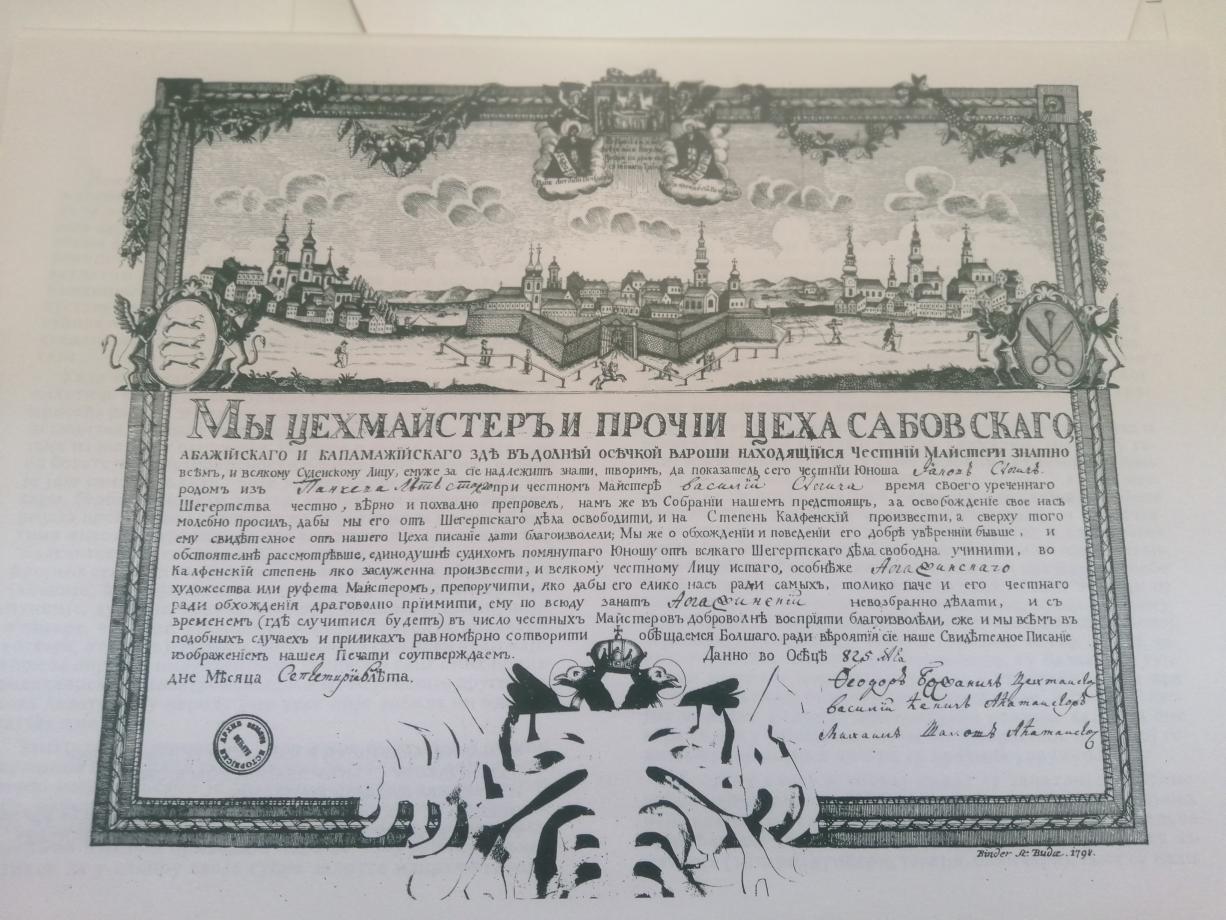 МЫ ЦЕХМАЙСТЕРЪ И ПРОЧІИ ЦЕХА САБОВСКАГО,
АБАЖІЙСКАГО И КАПАМАЖІЙСКАГО ЗДѢ ВЪ ДОЛНѢЙ ОСѢЧКОЙ ВАРОШИ НАХОДЯЩІЙСЯ ЧЕСТНІЙ МАЙСТЕРИ ЗНАТНО
всѣмъ, и всякому Суденскому Лицу, емуже за сіе надлежитъ знати, творимъ, да показатель сего честній Юноша
родомъ изъ при честномъ Майстерѣ василіи время своего уреченнаго
Шегертства честно, вѣрно и похвално препровелъ, намъ же въ Собраніи нашемъ предстоящъ, за освобожденіе свое насъ
молебно просилъ, дабы мы его отъ Шегертскаго дѣла освободити, и на Степень Калфенскій произвести, а сверху того
ему свидѣтелное отъ нашего Цеха писаніе дати благоизволели; Мы же о обхожденіи и поведеніи его добрѣ увѣренни бывше, и
обстоятелнѣ рассмотрѣвше, единодушнѣ судихомъ помянутаго Юношу отъ всякаго Шегертскаго дѣла свободна учинити, во
Калфенскій степень яко заслуженна произвести, и всякому честному Лицу истаго, особнѣже
художества или руфета Майстеромъ, препоручити, яко дабы его елико насъ ради самыхъ, толико паче и его честнаго
ради обхожденія драговолно пріимити, ему по всюду занатъ невозбранно дѣлати, и съ
временемъ (гдѣ случитися будетъ) въ число честныхъ Майстеровъ доброволнѣ воспріяти благоизволѣли, еже и мы всѣмъ въ
подобныхъ случаехъ и приликахъ равномѣрно сотворити обѣщаемся Болшаго, ради вѣроятія сіе наше Свидѣтелное Писаніе
изображеніемъ нашея Печати соутверждаемъ. Данно во Осѣцѣ 825
дне Мѣсяца Септемріа лѣта.
Ѳеодоръ
василій
Михаилъ
Binder sc. Budæ. 1798.